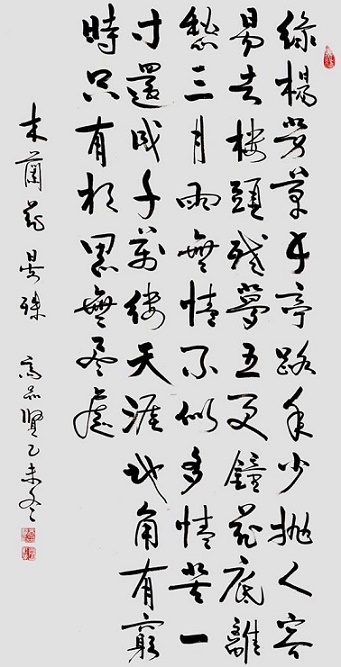 綠楊芳草長亭路年少拋人容
易去樓頭殘夢五更鐘花底離
愁三月雨無情不似多情苦一
寸還成千萬縷天涯地角有窮
時只有相思無盡處
木蘭花 晏殊 高賢乙未冬